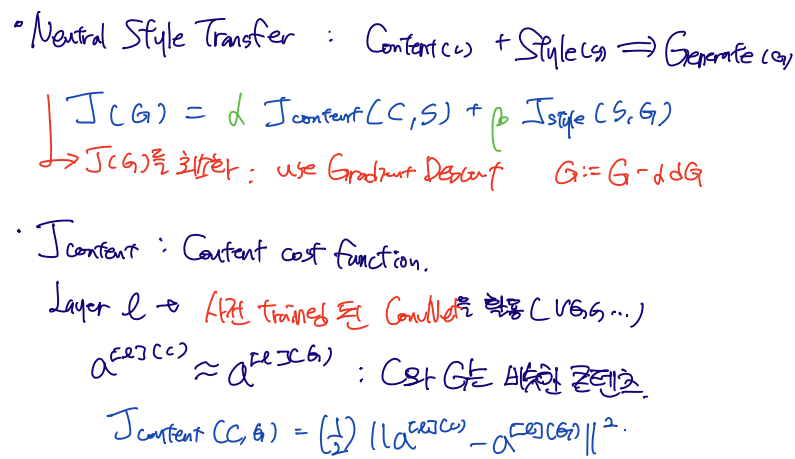 • Neutral Style Transfer : Content(c) + Style(s) ⟹ Generate(G)
J(G) = α Jcontent(C,S) + β Jstyle(S,G)
→ J(G)를 최소화 : use Gradient Descent G:= G - αdG
• Jcontent : Content cost function.
Layer l → 사전 training 된 ConvNet을 활용(VGG, ...)
a^[l](c) ≈ a^[l](G) : C와 G는 비슷한 콘텐츠.
Jcontent(C,G) = (1/2) ||a^[l](c) - a^[l](G)||^2.